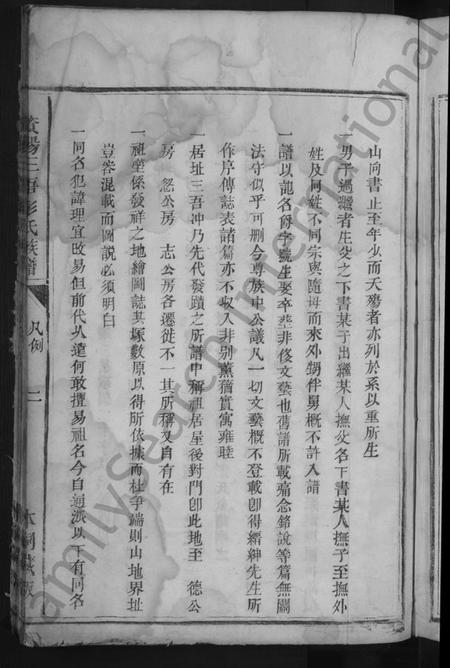 山向書止至年少而夭殤者亦列於系以重所生
一男子過繼者生父之下書某子出繼某人撫父名下書某人撫子至撫外
姓及同姓不同宗與隨母而來外甥伴舅概不許入譜
一譜以龍名爵字號生娶卒塟非侈文藝也舊譜所載痛念銘說等篇無關
法守似乎可刪今尊族中公議凡一切文藝概不登載即得縉紳先生所
作序傳誌表諸篇亦不收入非別薰蕕實寓雍睦
一居址三吾冲乃先代發蹟之所譜中稱祖居屋後對門即此地至 德公
房 忽公房 志公房各遷徙不一其所稱又自有在
一祖塋係發祥之地繪圖誌其塚數原以得所依據而杜爭端則山地界址
豈容混載而圖說必須明白
一同名犯諱理宜改易但前代久遠何敢擅易祖名今自通派以下有同名
三吾彭氏族譜
凡例
二
本祠藏板
FamilySearch International